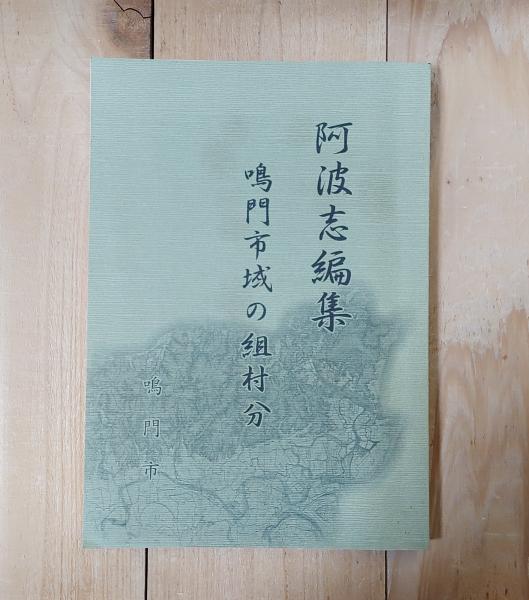 阿波志編集
鳴門市域の組村分
鳴門市